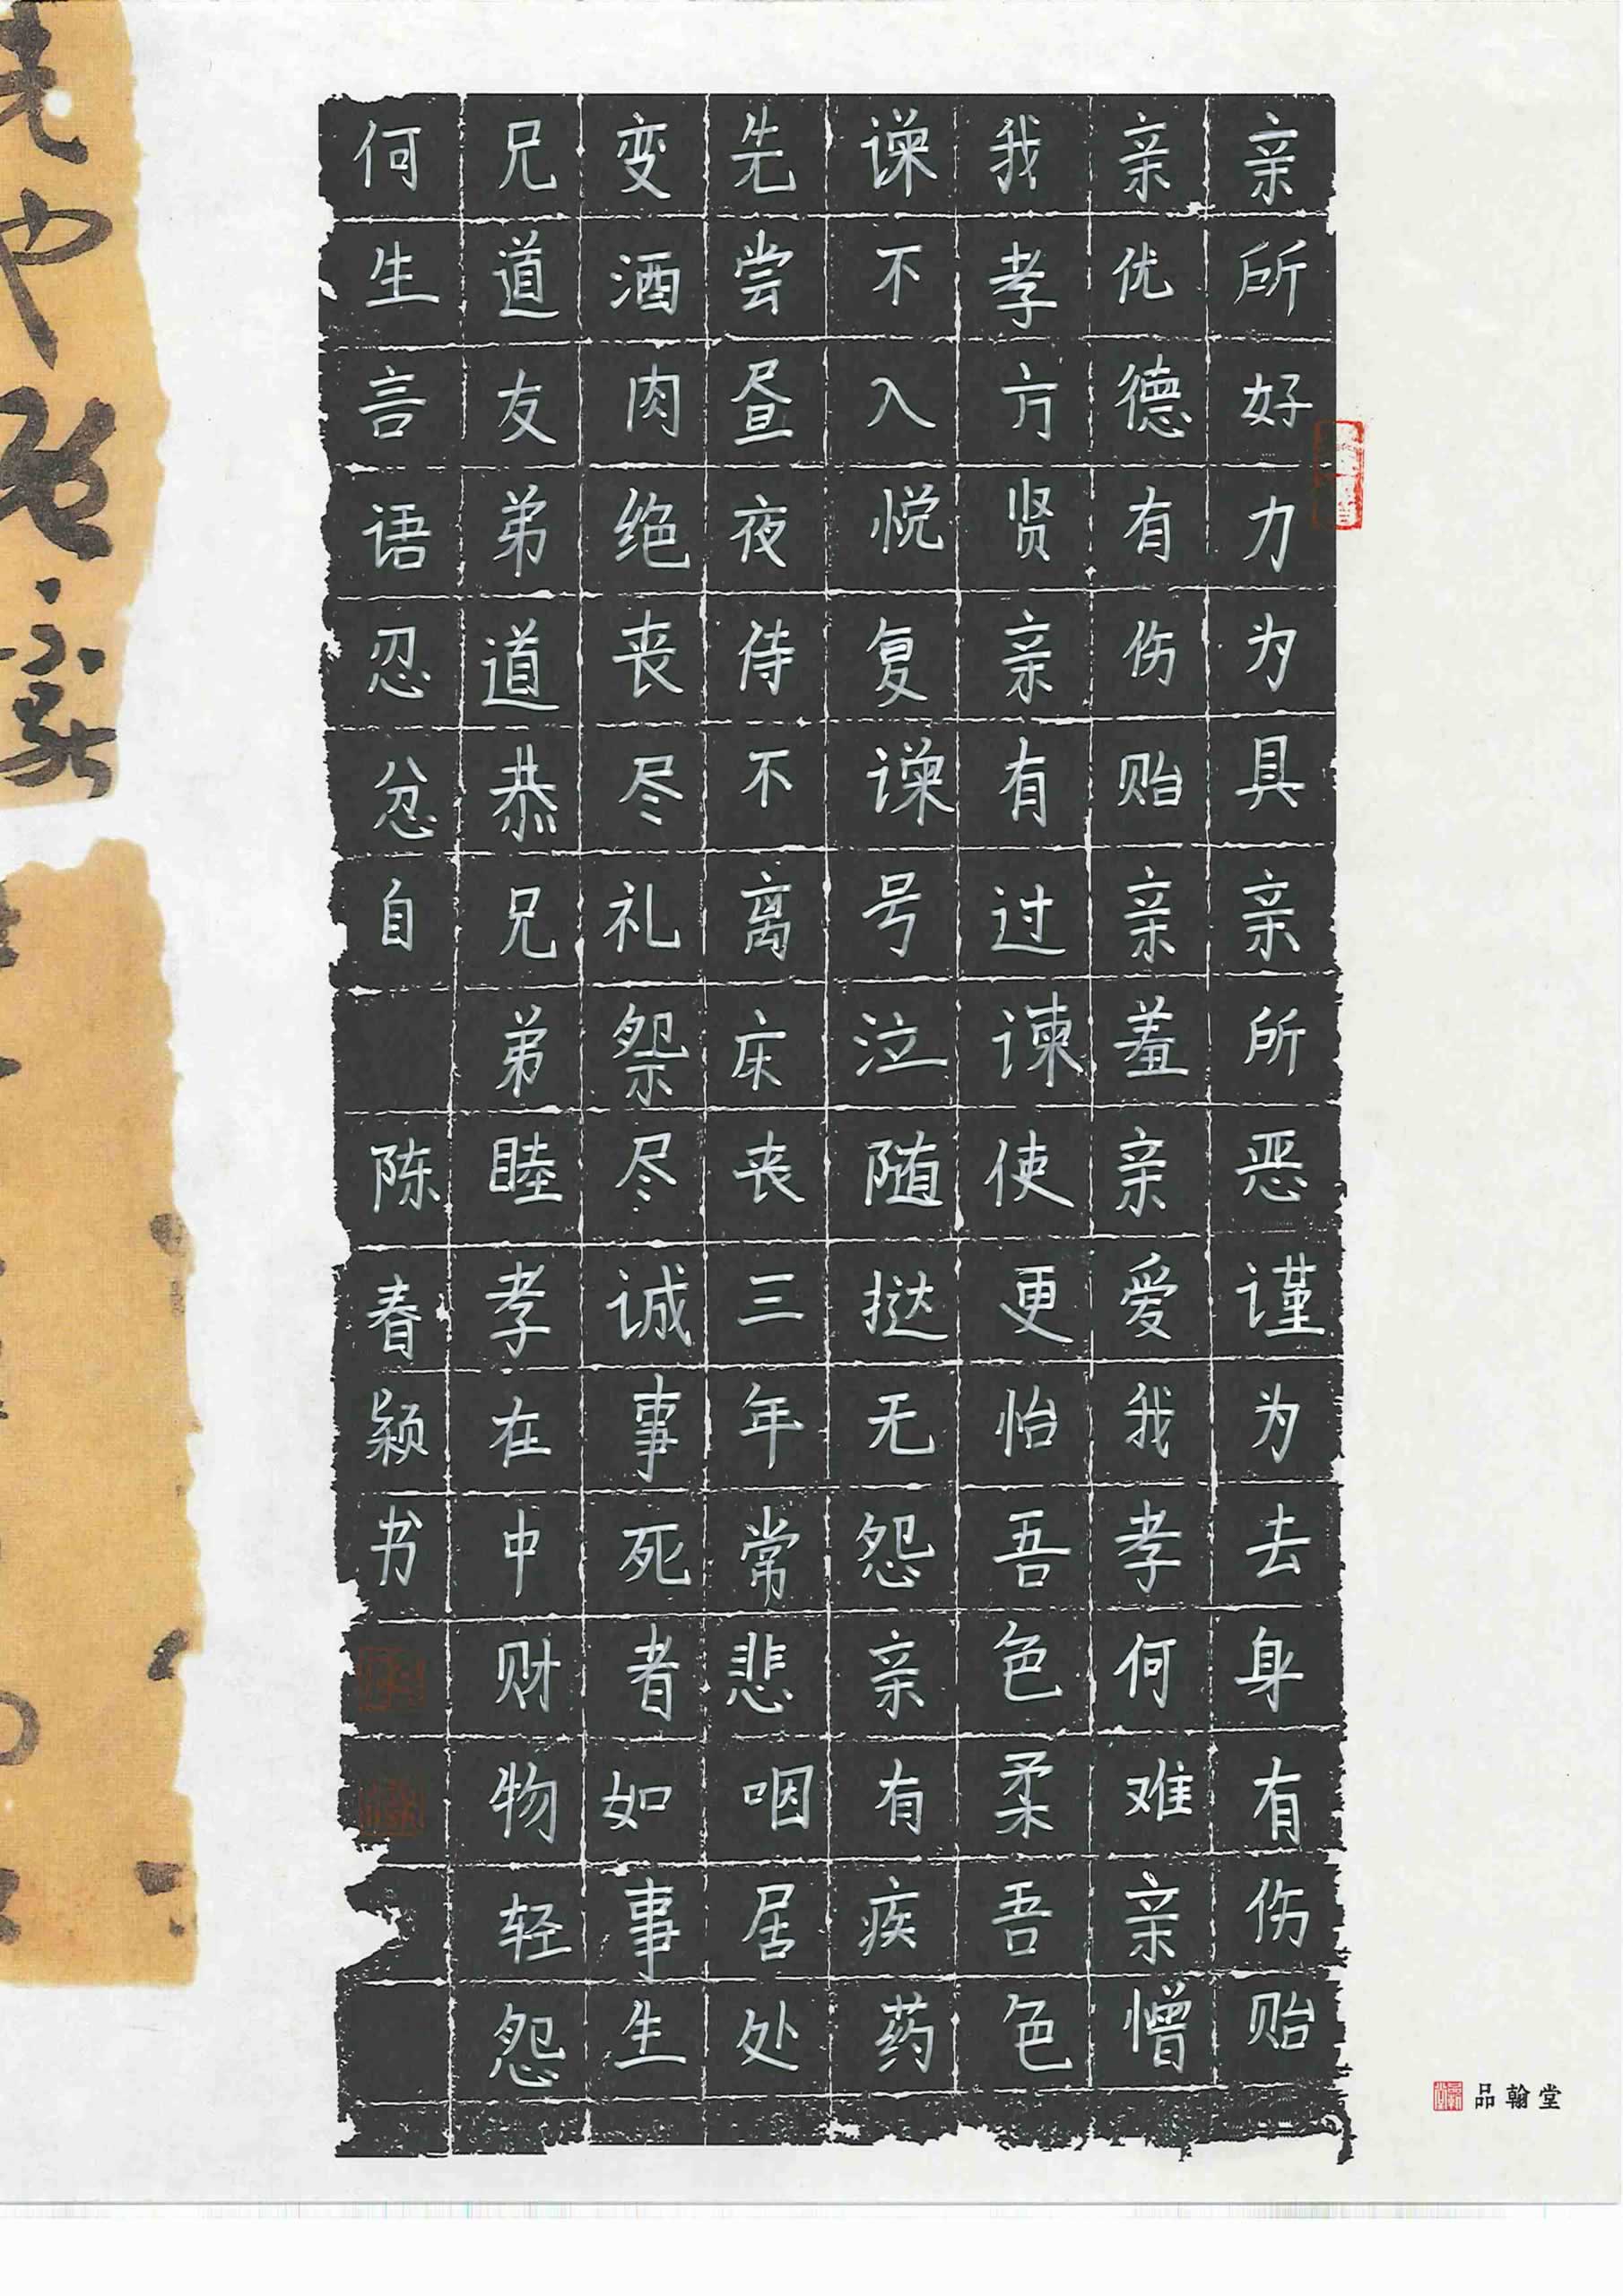 亲所好力为具亲所恶谨为去身有伤贻
亲优德有伤贻亲羞亲爱我孝何难亲憎
我孝方贤亲有过谏使更怡吾色柔吾色
谏不入悦复谏号泣随挞无怨亲有疾药
先尝昼夜侍不离床丧三年常悲咽居处
变酒肉绝丧尽礼祭尽诚事死者如事生
兄道友弟道恭兄弟睦孝在中财物轻怨
何生言语忍忿自 陈春颖书
品翰堂